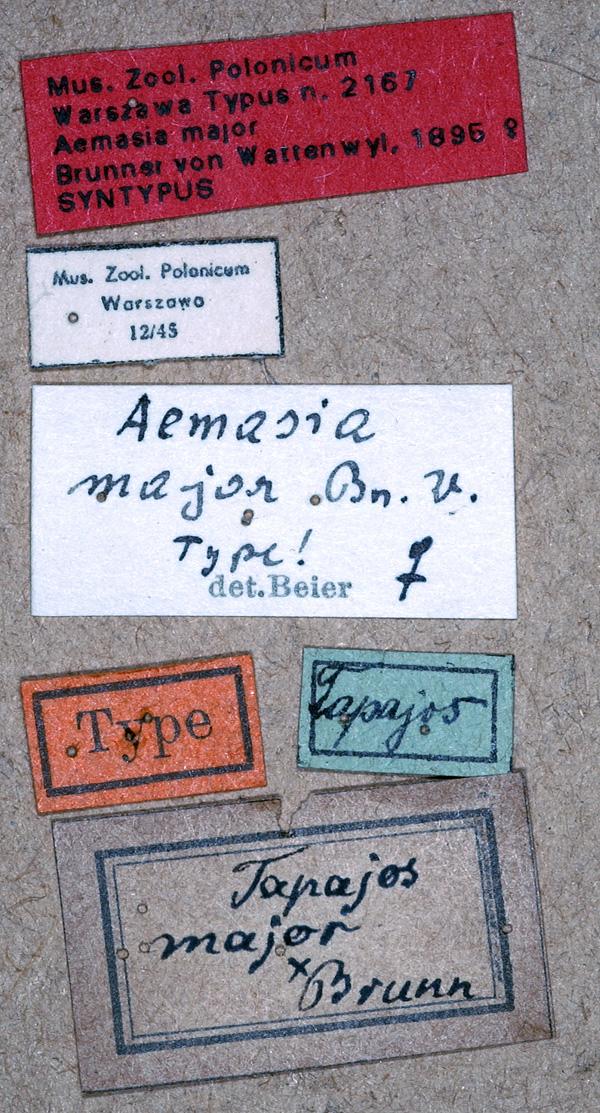 Mus. Zool. Polonicum
Warszawa Typus n. 2167
Aemasia major
Brunner von Wattenwyl, 1895 ♀
SYNTYPUS
Mus. Zool. Polonicum
Warszawa
12/45
Aemasia
major Bn. v.
Type! ♀
det. Beier
Type
Tapajos
Tapajos
major
× Brunn